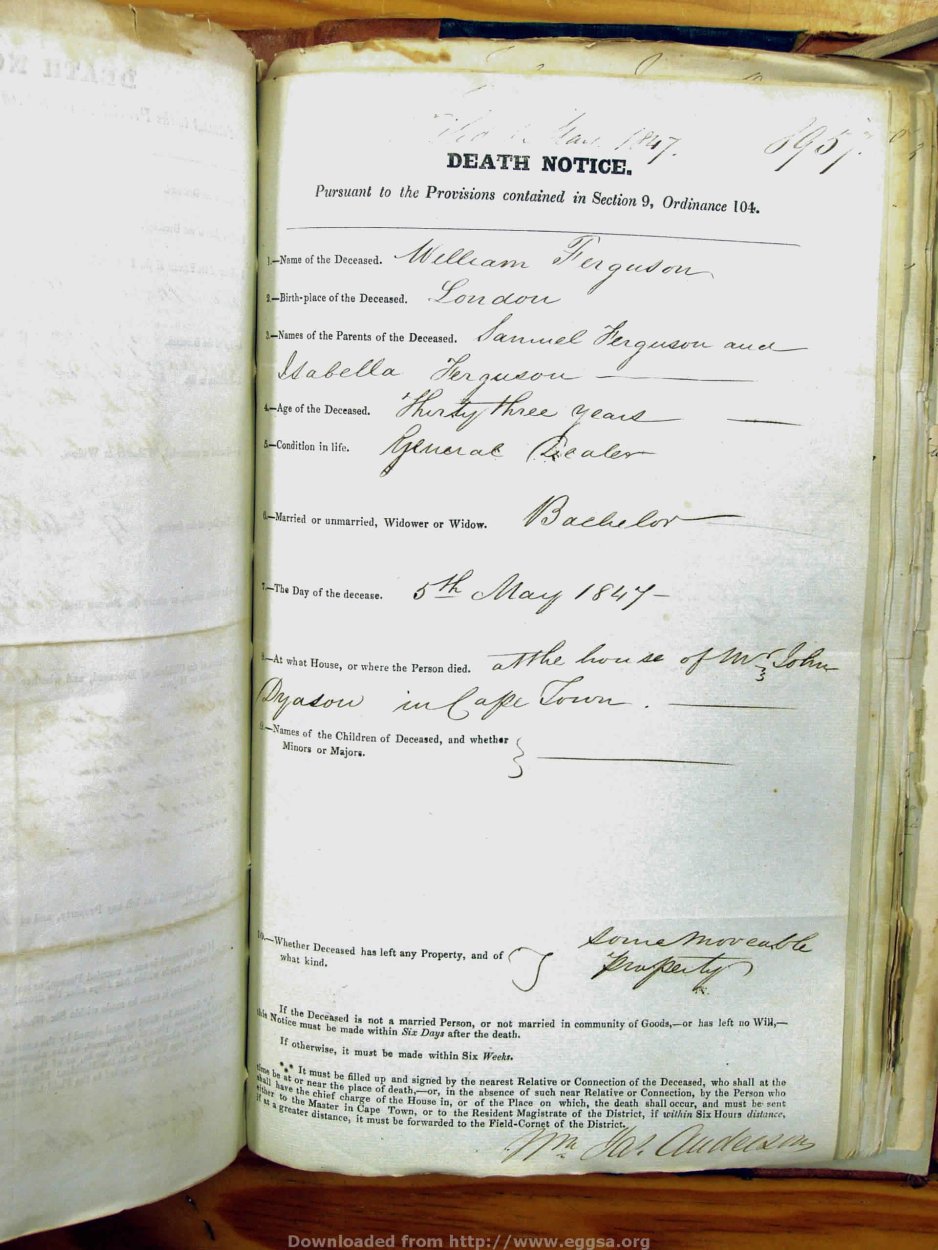 1847.
8957.
DEATH NOTICE.
Pursuant to the Provisions contained in Section 9, Ordinance 104.
1.—Name of the Deceased. William Ferguson
2.—Birth-place of the Deceased. London
3.—Names of the Parents of the Deceased. Samuel Ferguson and
Isabella Ferguson
4.—Age of the Deceased. Thirty three years
5.—Condition in life. General Dealer
6.—Married or unmarried, Widower or Widow. Bachelor
7.—The Day of the decease. 5th May 1847
8.—At what House, or where the Person died. at the house of Mr John
Dyason in Cape Town.
9.—Names of the Children of Deceased, and whether
Minors or Majors.
10.—Whether Deceased has left any Property, and of
what kind.
some moveable
property
If the Deceased is not a married Person, or not married in community of Goods,—or has left no Will,—
this Notice must be made within Six Days after the death.
If otherwise, it must be made within Six Weeks.
*** It must be filled up and signed by the nearest Relative or Connection of the Deceased, who shall at the
time be at or near the place of death,—or, in the absence of such near Relative or Connection, by the Person who
shall have the chief charge of the House in, or of the Place on which, the death shall occur, and must be sent
either to the Master in Cape Town, or to the Resident Magistrate of the District, if within Six Hours distance,
if at a greater distance, it must be forwarded to the Field-Cornet of the District.
Wm Anderson
Downloaded from http://www.eggsa.org